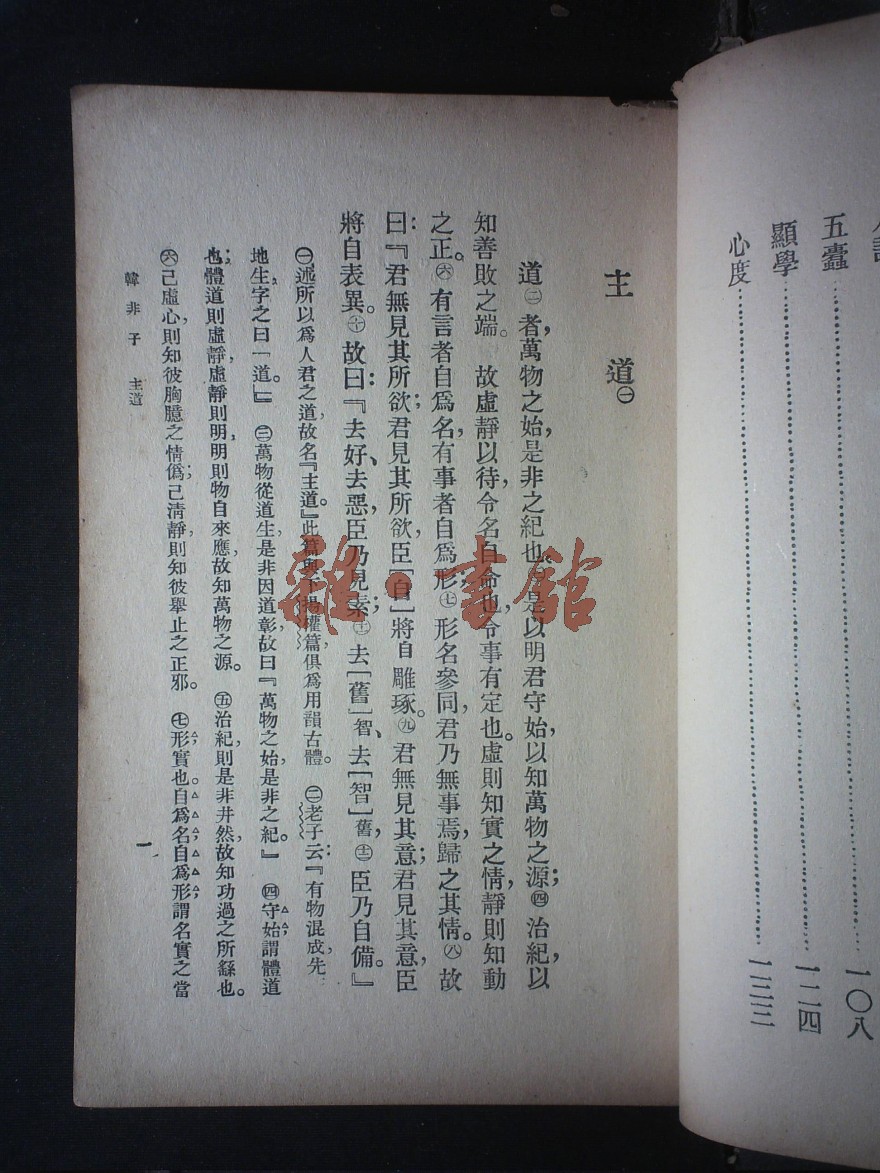 五蠹……一〇八
顯學……一二四
心度……一三三
主道㊀
道㊁者，萬物之始，是非之紀也。㊂是以明君守始，以知萬物之源；㊃治紀，以
知善敗之端。故虛靜以待，令名自命也，令事有定也。虛則知實之情，靜則知動
之正。㊅有言者自爲名，有事者自爲形；㊆形名參同，君乃無事焉，歸之其情。㊇故
曰：『君無見其所欲；君見其所欲，臣[自]將自雕琢。㊈君無見其意；君見其意，臣
將自表異。㊉故曰：『去好、去惡，臣乃見素；⑪去[舊]智、去[智]舊，⑫臣乃自備。』
㊀述所以爲人君之道，故名『主道。』此篇與下揚權篇，俱爲用韻古體。㊁老子云：『有物混成，先
地生，字之曰「道。」』㊂萬物從道生，是非因道彰，故曰『萬物之始，是非之紀。』㊃守始，謂體道
也；體道則虛靜，虛靜則明，明則物自來應，故知萬物之源。㊄治紀則是非井然，故知功過之所繇也。
㊅己虛心，則知彼胸臆之情僞；己清靜，則知彼舉止之正邪。㊆形，實也。自爲名，自爲形，謂名實之當
韓非子 主道
一
雜·書館